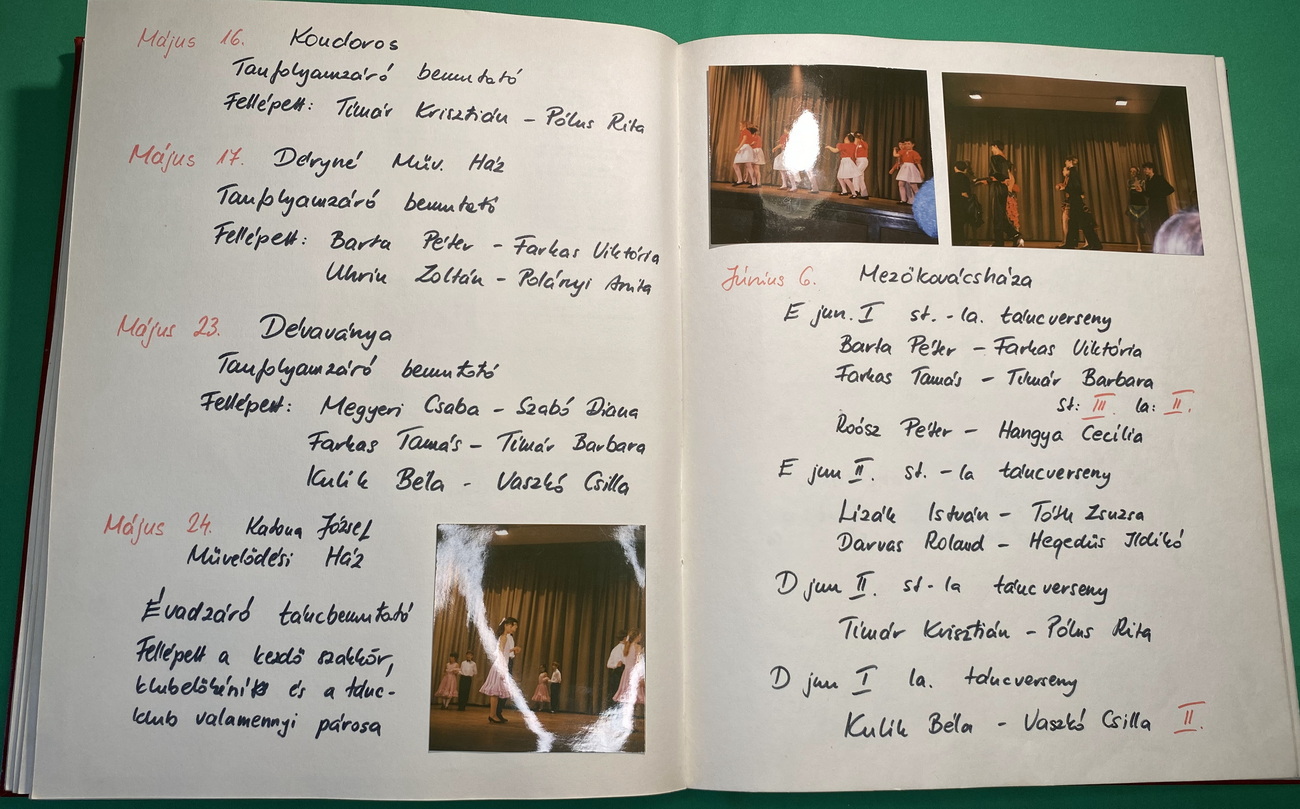 Május 16. Kondoros
Tanfolyamzáró bemutató
Fellépett: Tímár Krisztián - Pólus Rita
Május 17. Déryné Műv. Ház
Tanfolyamzáró bemutató
Fellépett: Barta Péter - Farkas Viktória
Uhrin Zoltán - Polányi Anita
Május 23. Dévaványa
Tanfolyamzáró bemutató
Fellépett: Megyeri Csaba - Szabó Diana
Farkas Tamás - Tímár Barbara
Kulik Béla - Vaszkó Csilla
Május 24. Katona József
Művelődési Ház
Évadzáró táncbemutató
Fellépett a kezdő szakkör,
klubelőkészítő és a tánc-
klub valamennyi párosa
Június 6. Mezőkovácsháza
E jun. I st. - la. táncverseny
Barta Péter - Farkas Viktória
Farkas Tamás - Tímár Barbara
st: III. la: II.
Roósz Péter - Hangya Cecília
E jun II. st. - la táncverseny
Lizák István - Tóth Zsuzsa
Darvas Roland - Hegedűs Ildikó
D jun II. st - la táncverseny
Tímár Krisztián - Pólus Rita
D jun I la. táncverseny
Kulik Béla - Vaszkó Csilla II.